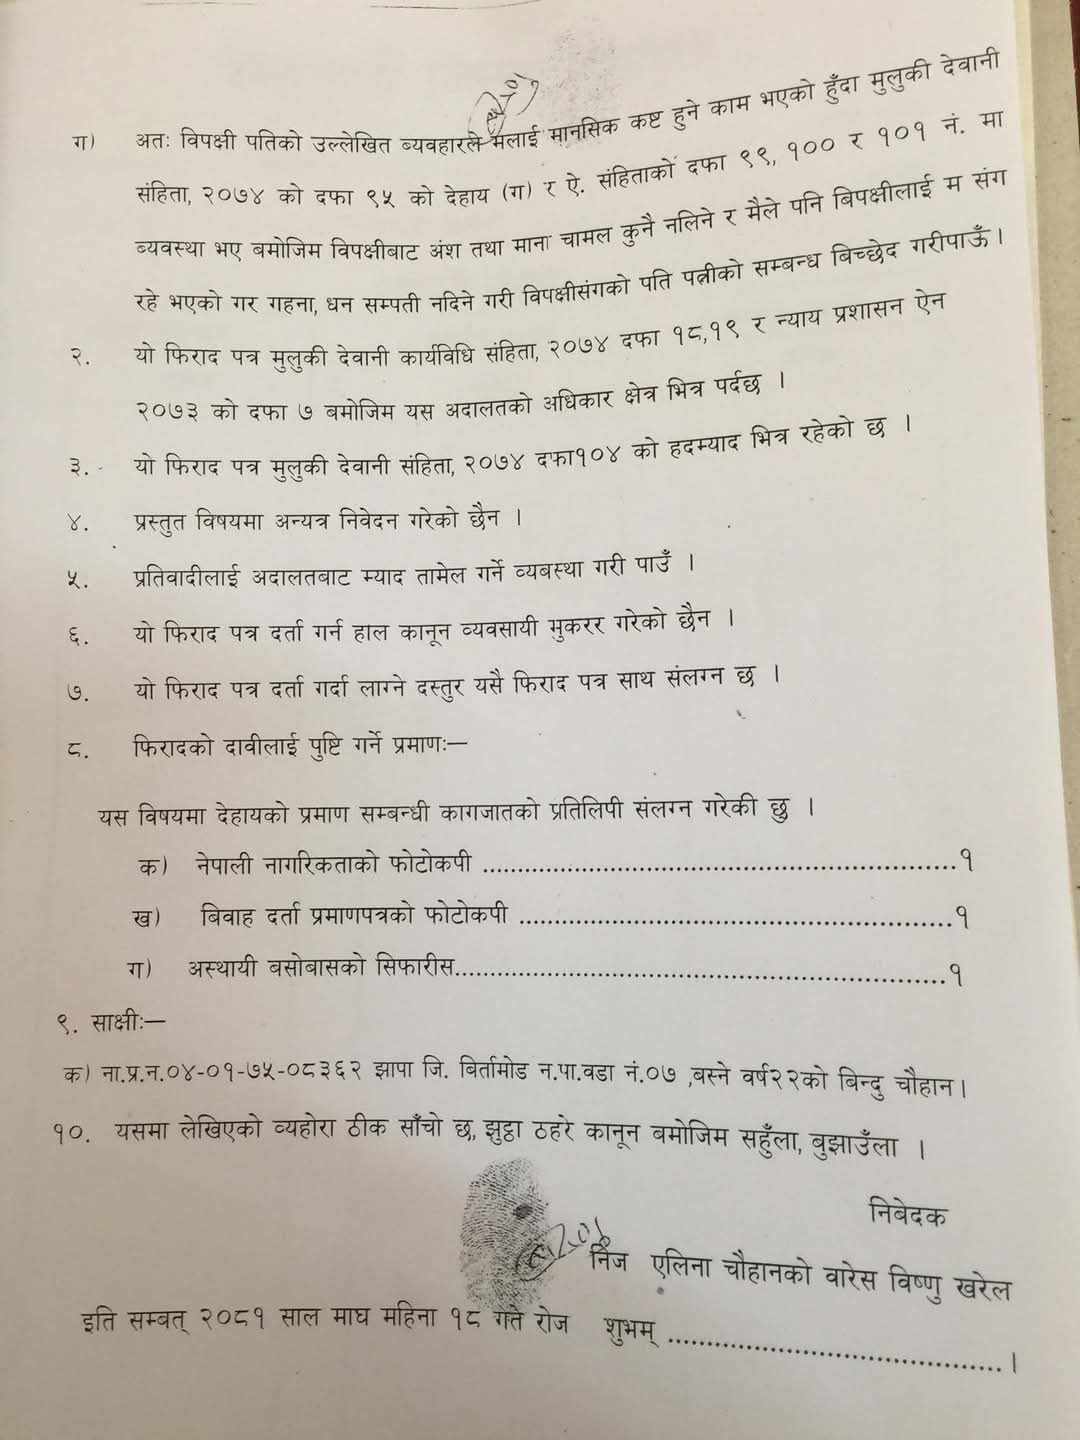 ग) अतः विपक्षी पतिको उल्लेखित ब्यवहारले मलाई मानसिक कष्ट हुने काम भएको हुँदा मुलुकी देवानी
संहिता, २०७४ को दफा ९५ को देहाय (ग) र ऐ. संहिताको दफा ९९, १०० र १०१ नं. मा
ब्यवस्था भए बमोजिम विपक्षीबाट अंश तथा माना चामल कुनै नलिने र मैले पनि बिपक्षीलाई म संग
रहे भएको गर गहना, धन सम्पती नदिने गरी विपक्षीसंगको पति पत्नीको सम्बन्ध बिच्छेद गरीपाऊँ ।
२. यो फिराद पत्र मुलुकी देवानी कार्यविधि संहिता, २०७४ दफा १८,१९ र न्याय प्रशासन ऐन
२०७३ को दफा ७ बमोजिम यस अदालतको अधिकार क्षेत्र भित्र पर्दछ ।
३. यो फिराद पत्र मुलुकी देवानी संहिता, २०७४ दफा१०४ को हदम्याद भित्र रहेको छ ।
४. प्रस्तुत विषयमा अन्यत्र निवेदन गरेको छैन ।
५. प्रतिवादीलाई अदालतबाट म्याद तामेल गर्ने व्यबस्था गरी पाउँ ।
६. यो फिराद पत्र दर्ता गर्न हाल कानून व्यवसायी मुकरर गरेको छैन ।
७. यो फिराद पत्र दर्ता गर्दा लाग्ने दस्तुर यसै फिराद पत्र साथ संलग्न छ ।
८. फिरादको दावीलाई पुष्टि गर्ने प्रमाणः–
यस विषयमा देहायको प्रमाण सम्बन्धी कागजातको प्रतिलिपी संलग्न गरेकी छु ।
क) नेपाली नागरिकताको फोटोकपी ..........................................................१
ख) बिवाह दर्ता प्रमाणपत्रको फोटोकपी .....................................................१
ग) अस्थायी बसोबासको सिफारीस............................................................१
९. साक्षीः–
क) ना.प्र.न.०४-०१-७५-०८३६२ झापा जि. बिर्तामोड न.पा.वडा नं.०७ ,बस्ने वर्ष२२को बिन्दु चौहान।
१०. यसमा लेखिएको व्यहोरा ठीक साँचो छ, झुठ्ठा ठहरे कानून बमोजिम सहुँला, बुझाउँला ।
निबेदक
निज एलिना चौहानको वारेस विष्णु खरेल
इति सम्बत् २०८१ साल माघ महिना १८ गते रोज शुभम् ........................................।